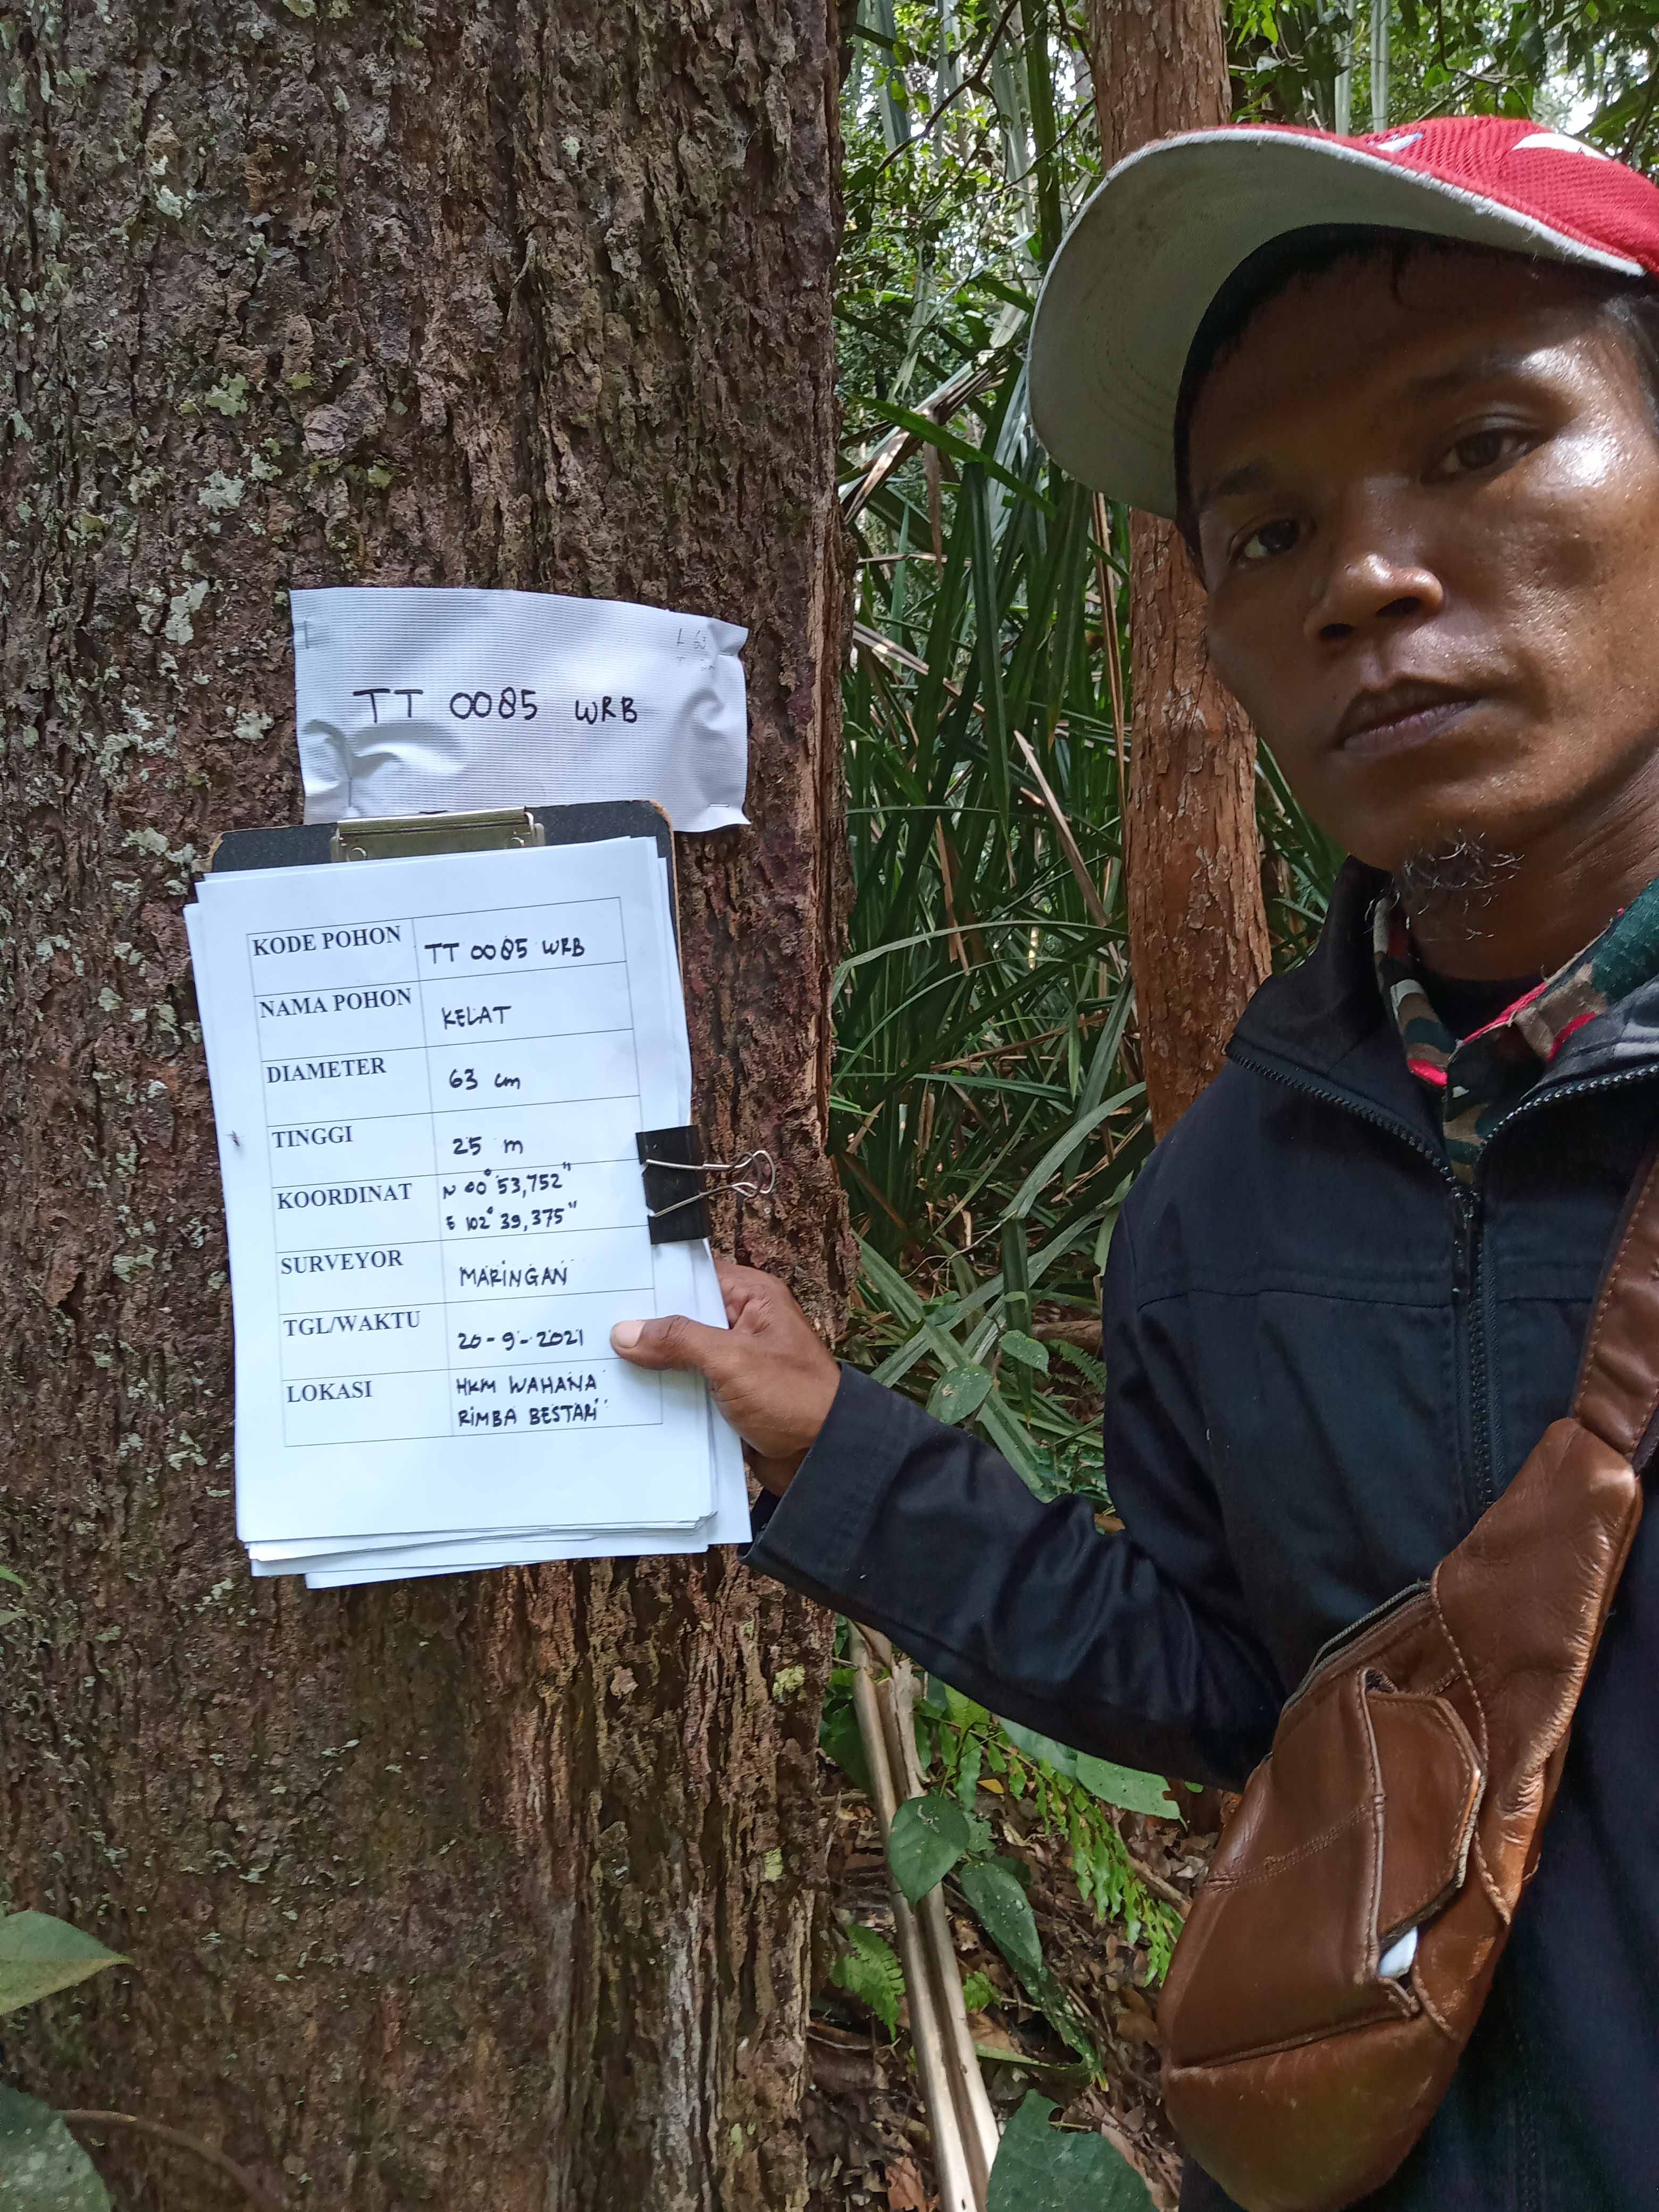 TT 0085 WRB
KODE POHON TT 0085 WRB
NAMA POHON KELAT
DIAMETER 63 cm
TINGGI 25 m
KOORDINAT N 00° 53,752"
E 102° 39,375"
SURVEYOR MARINGAN
TGL/WAKTU 20-9-2021
LOKASI HKM WAHANA
RIMBA BESTARI